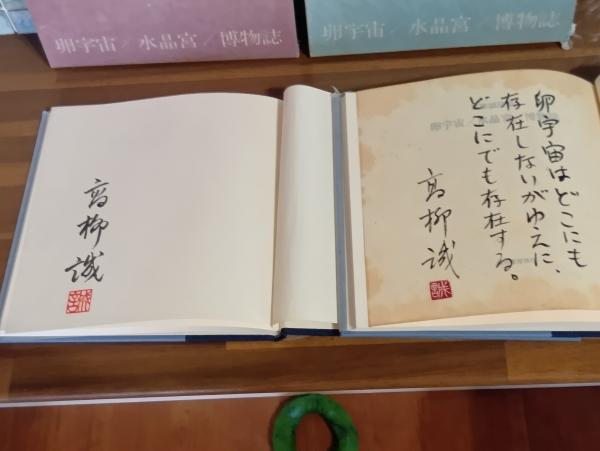 卵宇宙/水晶宮/博物誌
卵宇宙/水晶宮/博物誌
高柳誠
卵宇宙はどこにも
存在しないがゆえに、
どこにでも存在する。
高柳誠